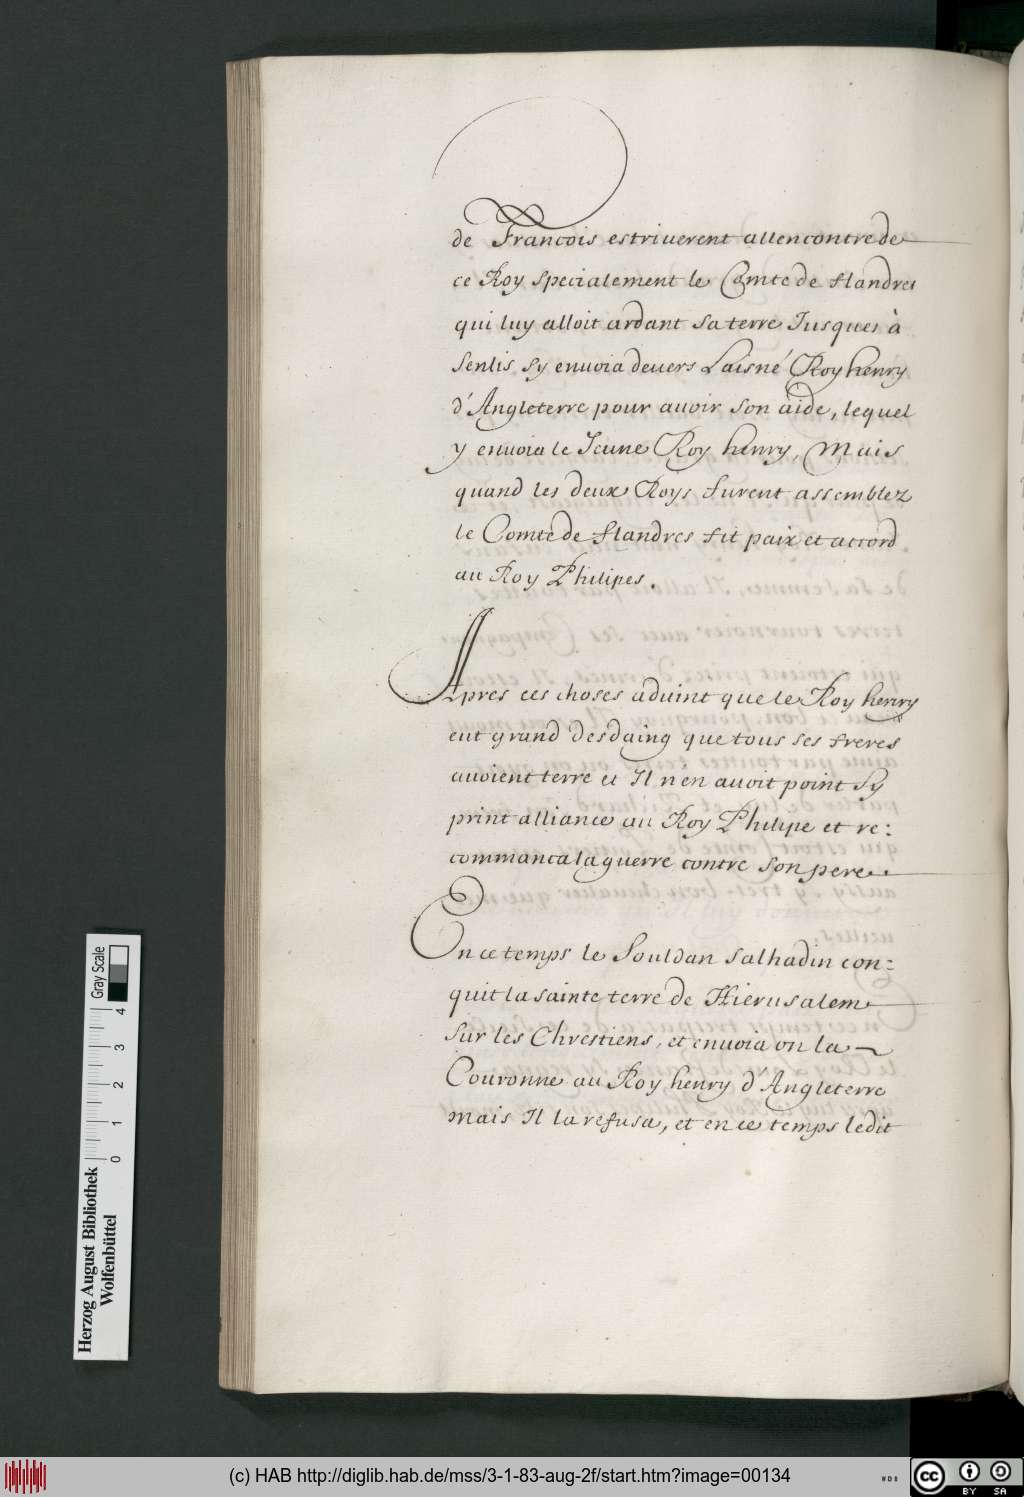 de Francois estriverent allencontre de
ce Roy specialement le Comte de flandres
qui luy alloit ardant sa terre Jusques à
senlis, sy envoia devers Laisné Roy henry
d'Angleterre pour avoir son aide, lequel
y envoia le Jeune Roy henry, Mais
quand les deux Roys furent assemblez
le Comte de flandres fit paix et accord
au Roy Philipes.
Apres ces choses advint que le Roy henry
eut grand desdaing que tous ses freres
avoient terre et Il n'en avoit point sy
print alliance au Roy Philipe et re:
commanca la guerre contre son pere.
En ce temps le Souldan salhadin con:
quit la sainte terre de Hierusalem
sur les Chrestiens, et envoia on la
Couronne au Roy henry d'Angleterre
mais Il la refusa, et en ce temps ledit
Herzog August Bibliothek
Wolfenbüttel
0 1 2 3 4
Gray Scale
(c) HAB http://diglib.hab.de/mss/3-1-83-aug-2f/start.htm?image=00134
WDB
cc BY SA